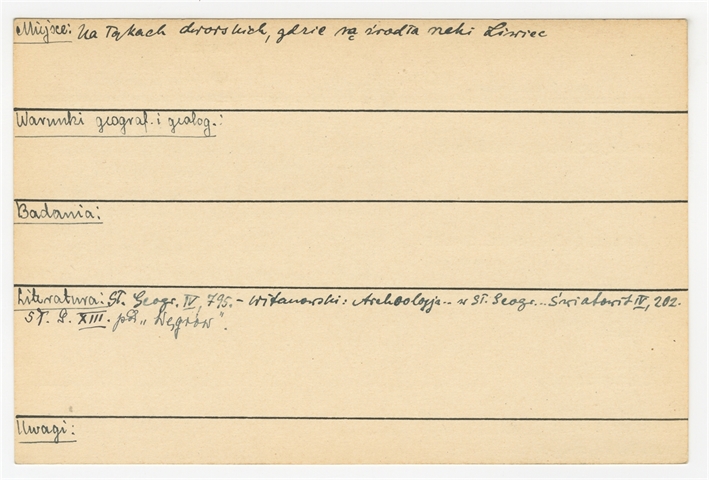 Miejsce: Na łąkach dworskich, gdzie są źródła rzeki Liwiec
Warunki geograf. i geolog.:
Badania:
Literatura: Sł. Geogr. IV, 795. – Witanowski: Archeologja.. w Sł. Geogr... Światowit IV, 202.
Sł. G. XIII. pd „Węgrów".
Uwagi: